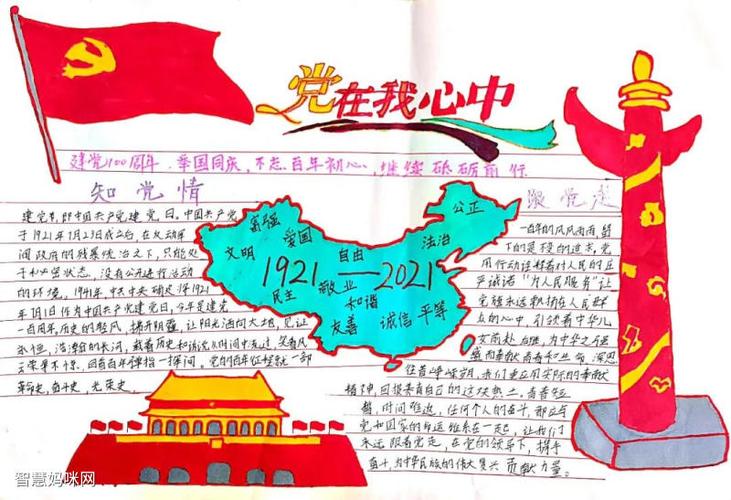 党在我心中
建党100周年 举国同庆,不忘百年初心,继续砥砺前行
知党情
建党节,即中国共产党建党日。中国共产党
于1921年7月23日成立后,在反动军
阀政府的残暴统治之下,只能处
于秘密状态,没有公开进行活动
的环境。1941年,中共中央确定将1921年
7月1日作为中国共产党建党日。今年是建党
一百周年历史的
让阳光洒向大地,见证
永恒,浩渺的长河,载着历史和
云荣辱不惊,回首百年弹指一挥间。党的百年征程就一部
革命史,奋斗史,光荣史。
富强
爱国
公正
文明
自由
法治
1921—2021
民主
敬业
和谐
友善
诚信
平等
跟党走
一百年的风风雨雨,留
下的是
党
用行动诠释着对人民的庄
严诺
“为人民服务”让
党旗永远飘扬在人民群
众的心中,引领着中华儿
女前赴后继,为中华之
往昔峥嵘岁月,我们要应用实际的奉献
精神,回报养育自己的这块热土。青春
时间难追,任何个人的奋斗,都应与
党和国家的命运维系在一起,让我们
永远跟着党走,在党的领导下,携手
奋斗,为中华民族的伟大复兴贡献力量。
智慧妈咪网